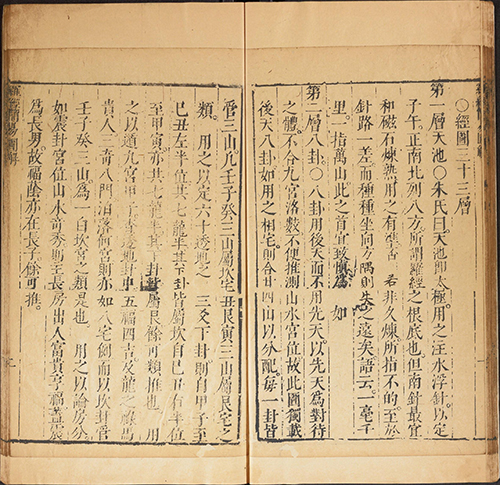 ○經圖三十三層
第一層天池○朱氏曰天池即太極用之汪水浮針以定
子午正南北列八方所謂羅經之根底也但南針最宜
和磁石煉熱用之有準若非久煉所指不的至於
針路一差而種種坐向方隅則失之遠矣語云一毫千
里一指萬山此之首宜致慎為如
第二層八卦○八卦用後天而不用先天以先天為對待
之體不合九宮洛數不便推測山水宮位故此圖獨載
後天八卦如用之相宅則合廿四山以分配每一卦皆
管三山凡壬子癸三山屬坎宅丑艮寅三山屬艮宅之
類用之以定六十透地之三爻下卦則自甲子至
己丑左半位其七龍半其下卦皆屬坎自己丑右半位
至甲寅亦其七龍半其下卦屬艮餘可類推也用
之以遁九宮甲子透地卦中五福四吉及龍之祿馬
貴人奇八門泊落何宮則亦如八宅例而以坎卦管
壬子癸三山為一白坎宮之類是也用之以論房分
如震卦宮位山水奇秀則主長房出人富貴享福蓋震
為長男故福蔭亦在長子餘可推